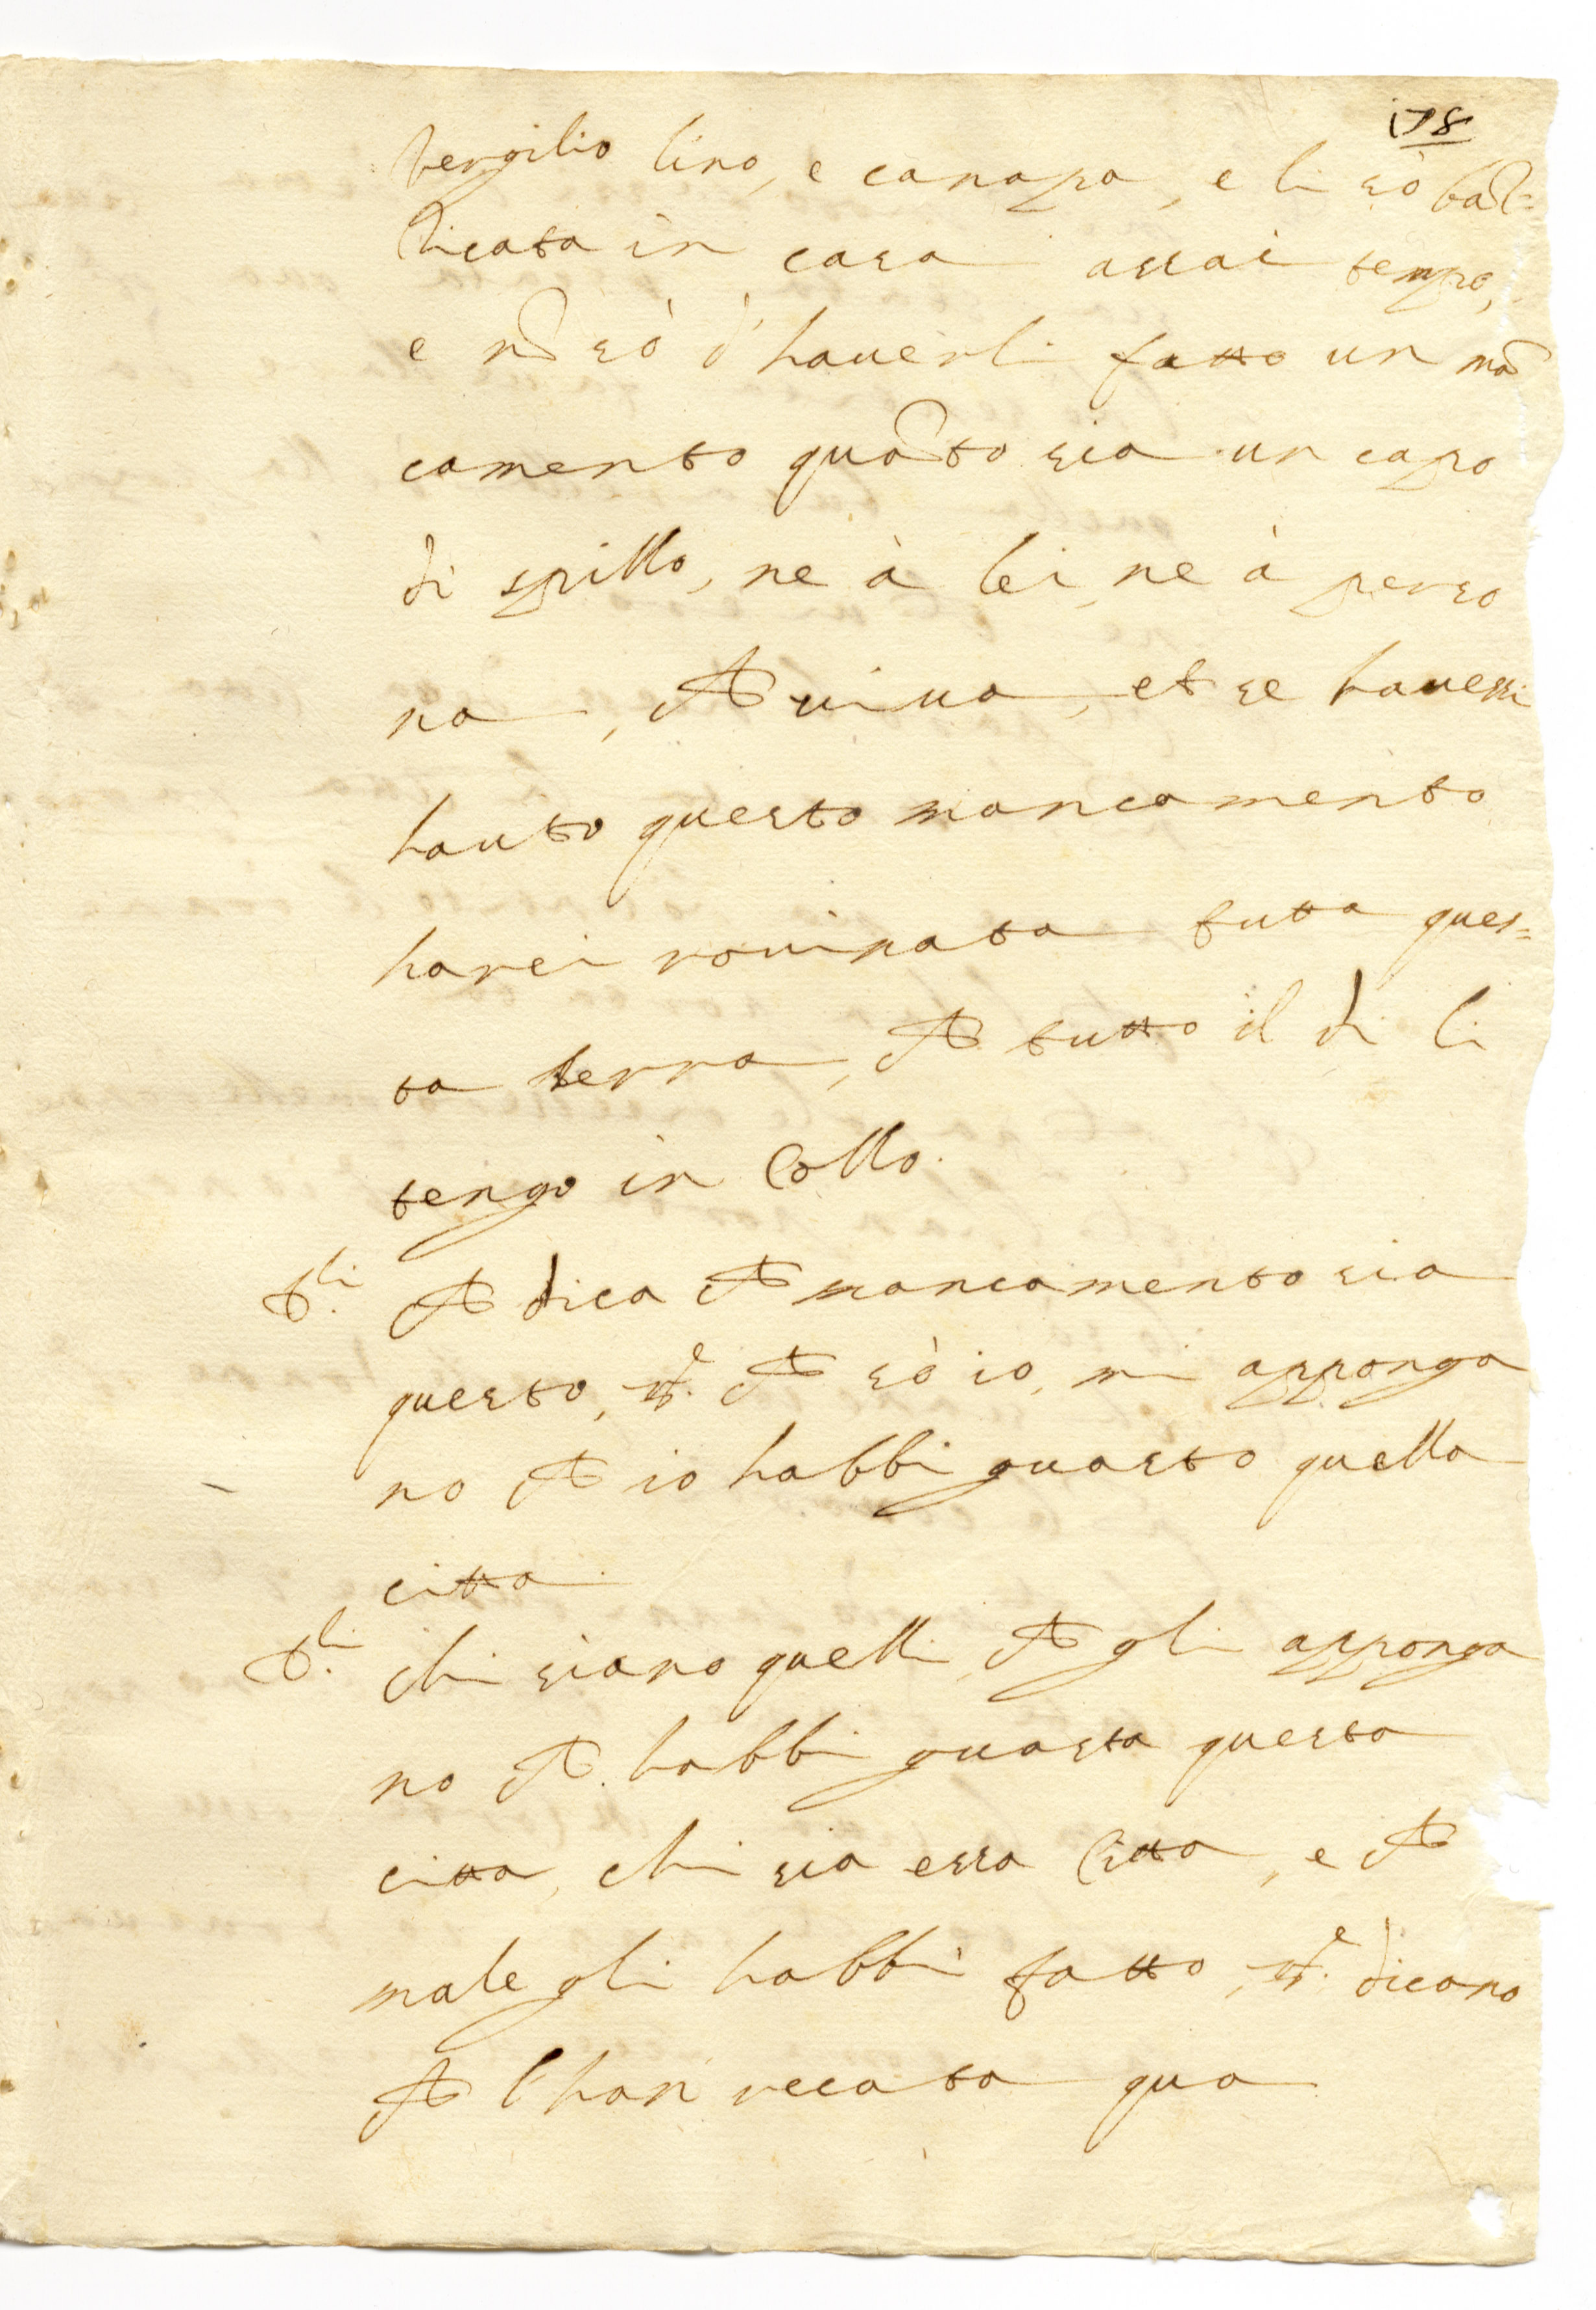 178
Vergilio lino, e canapa, e li sò bãt=
ticata in casa assai tempo,
e nõ sò d'haverli fatto un mã
camento quãto sia un capo
di spillo, ne à lei, ne à perso
na, che viva, et se havessi
hauto questo mancamento
harei rovinata tutta ques=
ta terra, che tutto il di li
tengo in Collo.
D.li che dica che mancamento sia
questo, R.e che sò io, mi appongo
no che io habbi guasto quella
citta.
D.li chi siano quelli che gli appongo
no che habbi guasta questa
citta, chi sia essa Citta, e che
male gli habbi fatto, R.e dicano
che l'han recata qua